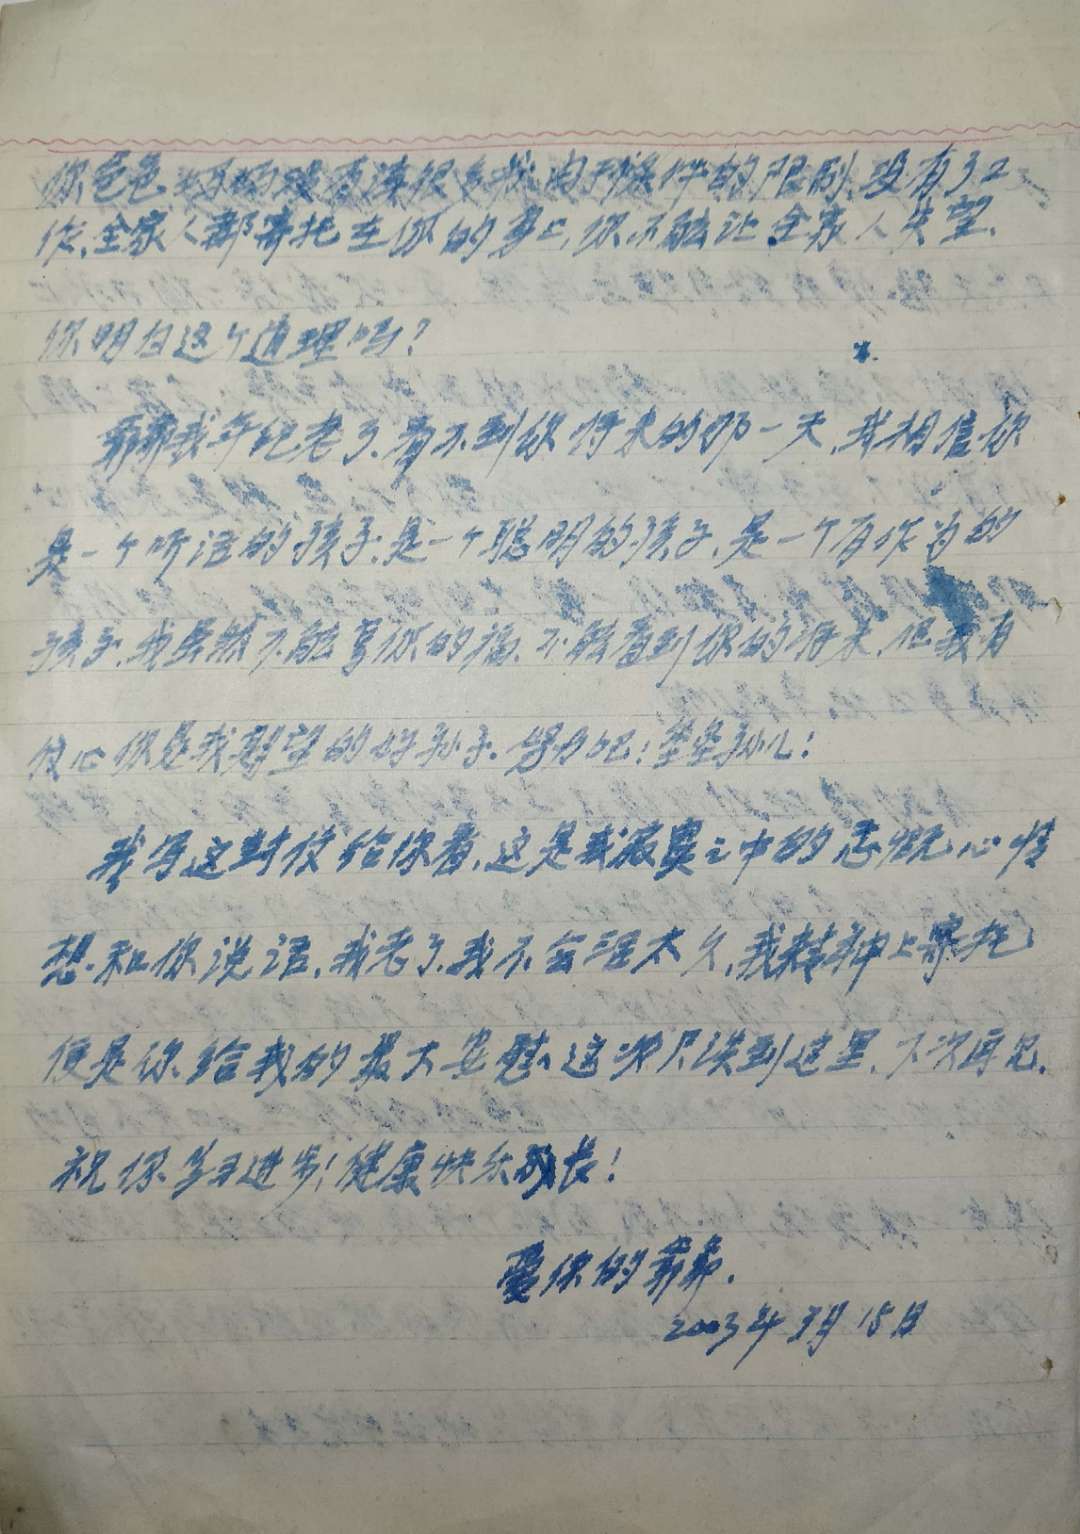 你爸爸妈妈
的限制、没有了工
作、全家人都寄托在你的身上,你不能让全家人失望、
你明白这个道理吗?
爷爷我年纪老了、看不到你将来的那一天,我相信你
是一个听话的孩子、是一个聪明的孩子、是一个有作为的
孩子、我虽然不能享你的福、不能看到你的将来、但我有
信心你是我期望的好孙子、努力吧!
我写这封信给你看、这是我寂寞之中的 心情
想和你说话、我老了、我不会活太久、我精神上寄托
便是你给我的最大安慰、这次只谈到这里、下次再见、
祝你学习进步!健康快乐成长!
爱你的爷爷、
2003年3月15日